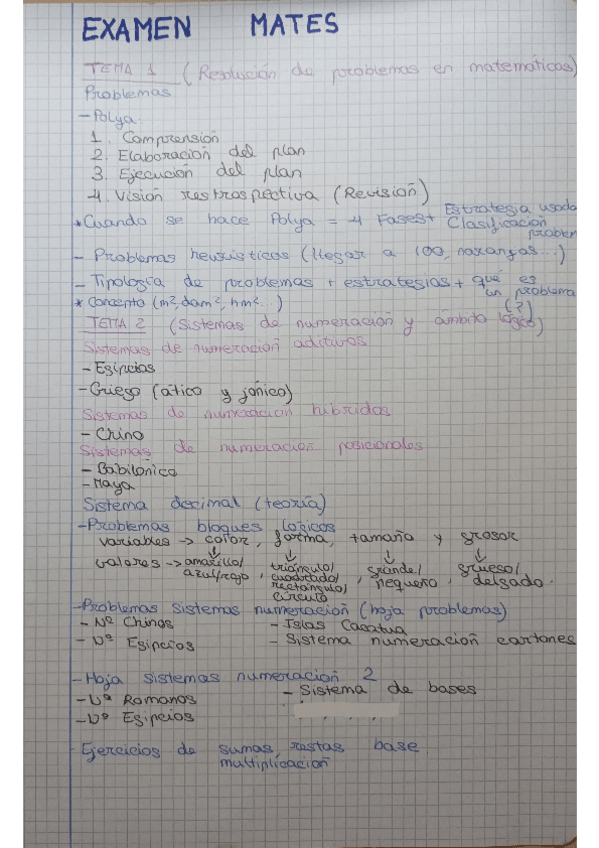 EXAMEN MATES
TEMA 1 (Resolución de problemas en matemáticas)
Problemas
- Polya.
1. Comprensión
2. Elaboración del plan
3. Ejecución del plan
4. Visión restrospectiva (Revisión)
* Cuando se hace Polya = 4 Fases + Estrategia usada
Clasificación
problem
- Problemas heurísticos (llegar a 100, naranjas...)
- Tipología de problemas + estrategias + qué es
un problema
(?)
* Concepto (m², dam², hm²...)
TEMA 2 (Sistemas de numeración y ámbito lógico)
Sistemas de numeración aditivos
- Egipcios
- Griego (ático y jónico)
Sistemas de numeración híbridos
- Chino
Sistemas de numeración posicionales
- Babilónico
- Maya
Sistema decimal (teoría)
- Problemas bloques lógicos
variables → color, forma, tamaño y grosor
valores → amarillo/ triángulo/ grande/ grueso/
azul/rojo, cuadrado/ pequeño, delgado.
rectángulo/
círculo
- Problemas sistemas numeración (hoja problemas)
- Nº Chinos - Islas Cacatua
- Nº Egipcios - Sistema numeración cartones
- Hoja sistemas numeración 2
- Nº Romanos - Sistema de bases
- Nº Egipcios
- Ejercicios de sumas, restas base
multiplicación